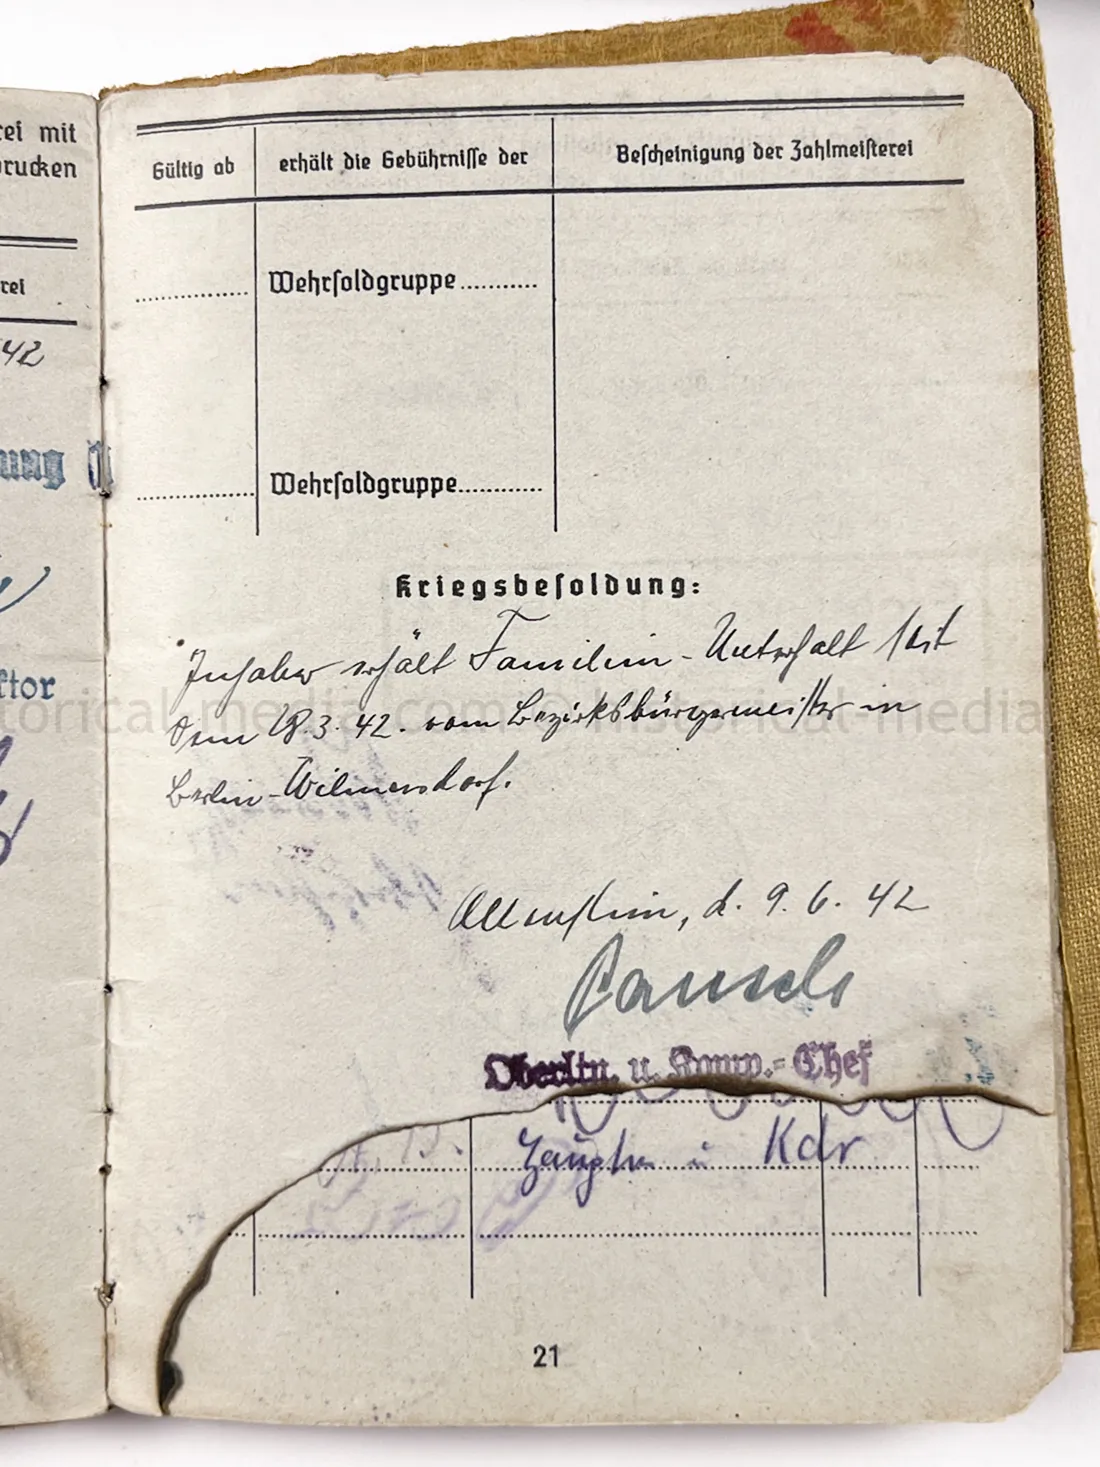 rei mit
drucken
rei
42
ung
ktor
Gültig ab
erhält die Gebührnisse der
Bescheinigung der Zahlmeisterei
Wehrsoldgruppe...........
Wehrsoldgruppe............
Kriegsbesoldung:
Inhaber erhält Familien-Unterhalt seit
dem 18.3.42. vom Bezirksbürgermeister in
Berlin-Wilmersdorf.
historical-media.com © historical-media
Allenstein, d. 9.6.42
Oberltn. u. Komp.-Chef
Hauptm u Kdr
21